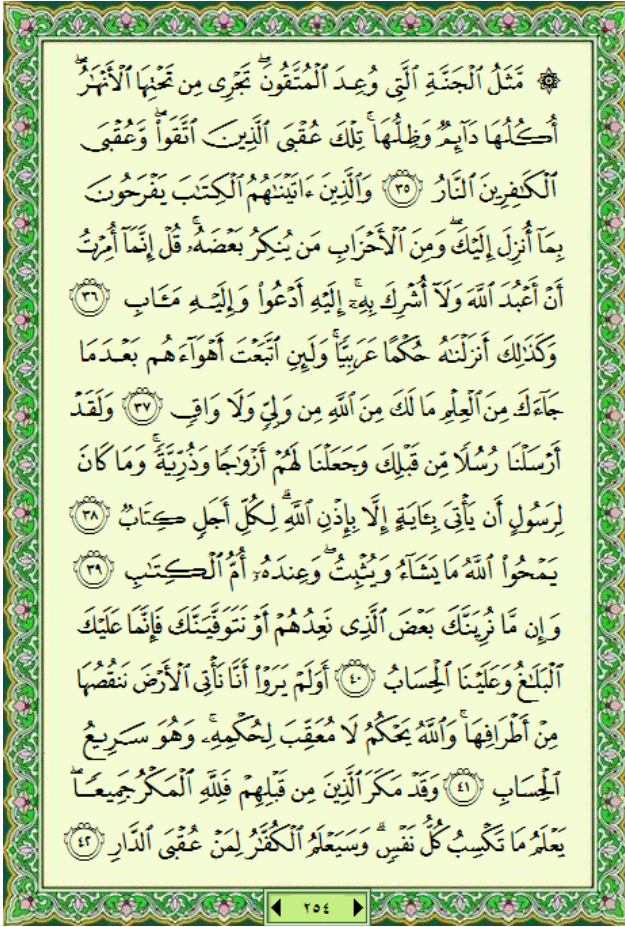 ۞ مَّثَلُ ٱلْجَنَّةِ ٱلَّتِى وُعِدَ ٱلْمُتَّقُونَ ۖ تَجْرِى مِن تَحْتِهَا ٱلْأَنْهَـٰرُ ۖ
أُكُلُهَا دَآئِمٌ وَظِلُّهَا ۚ تِلْكَ عُقْبَى ٱلَّذِينَ ٱتَّقَوا۟ ۖ وَّعُقْبَى
ٱلْكَـٰفِرِينَ ٱلنَّارُ ﴿٣٥﴾ وَٱلَّذِينَ ءَاتَيْنَـٰهُمُ ٱلْكِتَـٰبَ يَفْرَحُونَ
بِمَآ أُنزِلَ إِلَيْكَ ۖ وَمِنَ ٱلْأَحْزَابِ مَن يُنكِرُ بَعْضَهُۥ ۚ قُلْ إِنَّمَآ أُمِرْتُ
أَنْ أَعْبُدَ ٱللَّهَ وَلَآ أُشْرِكَ بِهِۦٓ ۚ إِلَيْهِ أَدْعُوا۟ وَإِلَيْهِ مَـَٔابِ ﴿٣٦﴾
وَكَذَٰلِكَ أَنزَلْنَـٰهُ حُكْمًا عَرَبِيًّا ۚ وَلَئِنِ ٱتَّبَعْتَ أَهْوَآءَهُم بَعْدَمَا
جَآءَكَ مِنَ ٱلْعِلْمِ مَا لَكَ مِنَ ٱللَّهِ مِن وَلِىٍّ وَلَا وَاقٍ ﴿٣٧﴾ وَلَقَدْ
أَرْسَلْنَا رُسُلًا مِّن قَبْلِكَ وَجَعَلْنَا لَهُمْ أَزْوَٰجًا وَذُرِّيَّةً ۚ وَمَا كَانَ
لِرَسُولٍ أَن يَأْتِىَ بِـَٔايَةٍ إِلَّا بِإِذْنِ ٱللَّهِ ۗ لِكُلِّ أَجَلٍ كِتَابٌ ﴿٣٨﴾
يَمْحُوا۟ ٱللَّهُ مَا يَشَآءُ وَيُثْبِتُ ۖ وَعِندَهُۥٓ أُمُّ ٱلْكِتَـٰبِ ﴿٣٩﴾
وَإِن مَّا نُرِيَنَّكَ بَعْضَ ٱلَّذِى نَعِدُهُمْ أَوْ نَتَوَفَّيَنَّكَ فَإِنَّمَا عَلَيْكَ
ٱلْبَلَـٰغُ وَعَلَيْنَا ٱلْحِسَابُ ﴿٤٠﴾ أَوَلَمْ يَرَوْا۟ أَنَّا نَأْتِى ٱلْأَرْضَ نَنقُصُهَا
مِنْ أَطْرَافِهَا ۚ وَٱللَّهُ يَحْكُمُ لَا مُعَقِّبَ لِحُكْمِهِۦ ۚ وَهُوَ سَرِيعُ
ٱلْحِسَابِ ﴿٤١﴾ وَقَدْ مَكَرَ ٱلَّذِينَ مِن قَبْلِهِمْ فَلِلَّهِ ٱلْمَكْرُ جَمِيعًا ۖ
يَعْلَمُ مَا تَكْسِبُ كُلُّ نَفْسٍ ۗ وَسَيَعْلَمُ ٱلْكُفَّـٰرُ لِمَنْ عُقْبَى ٱلدَّارِ ﴿٤٢﴾
٢٥٤